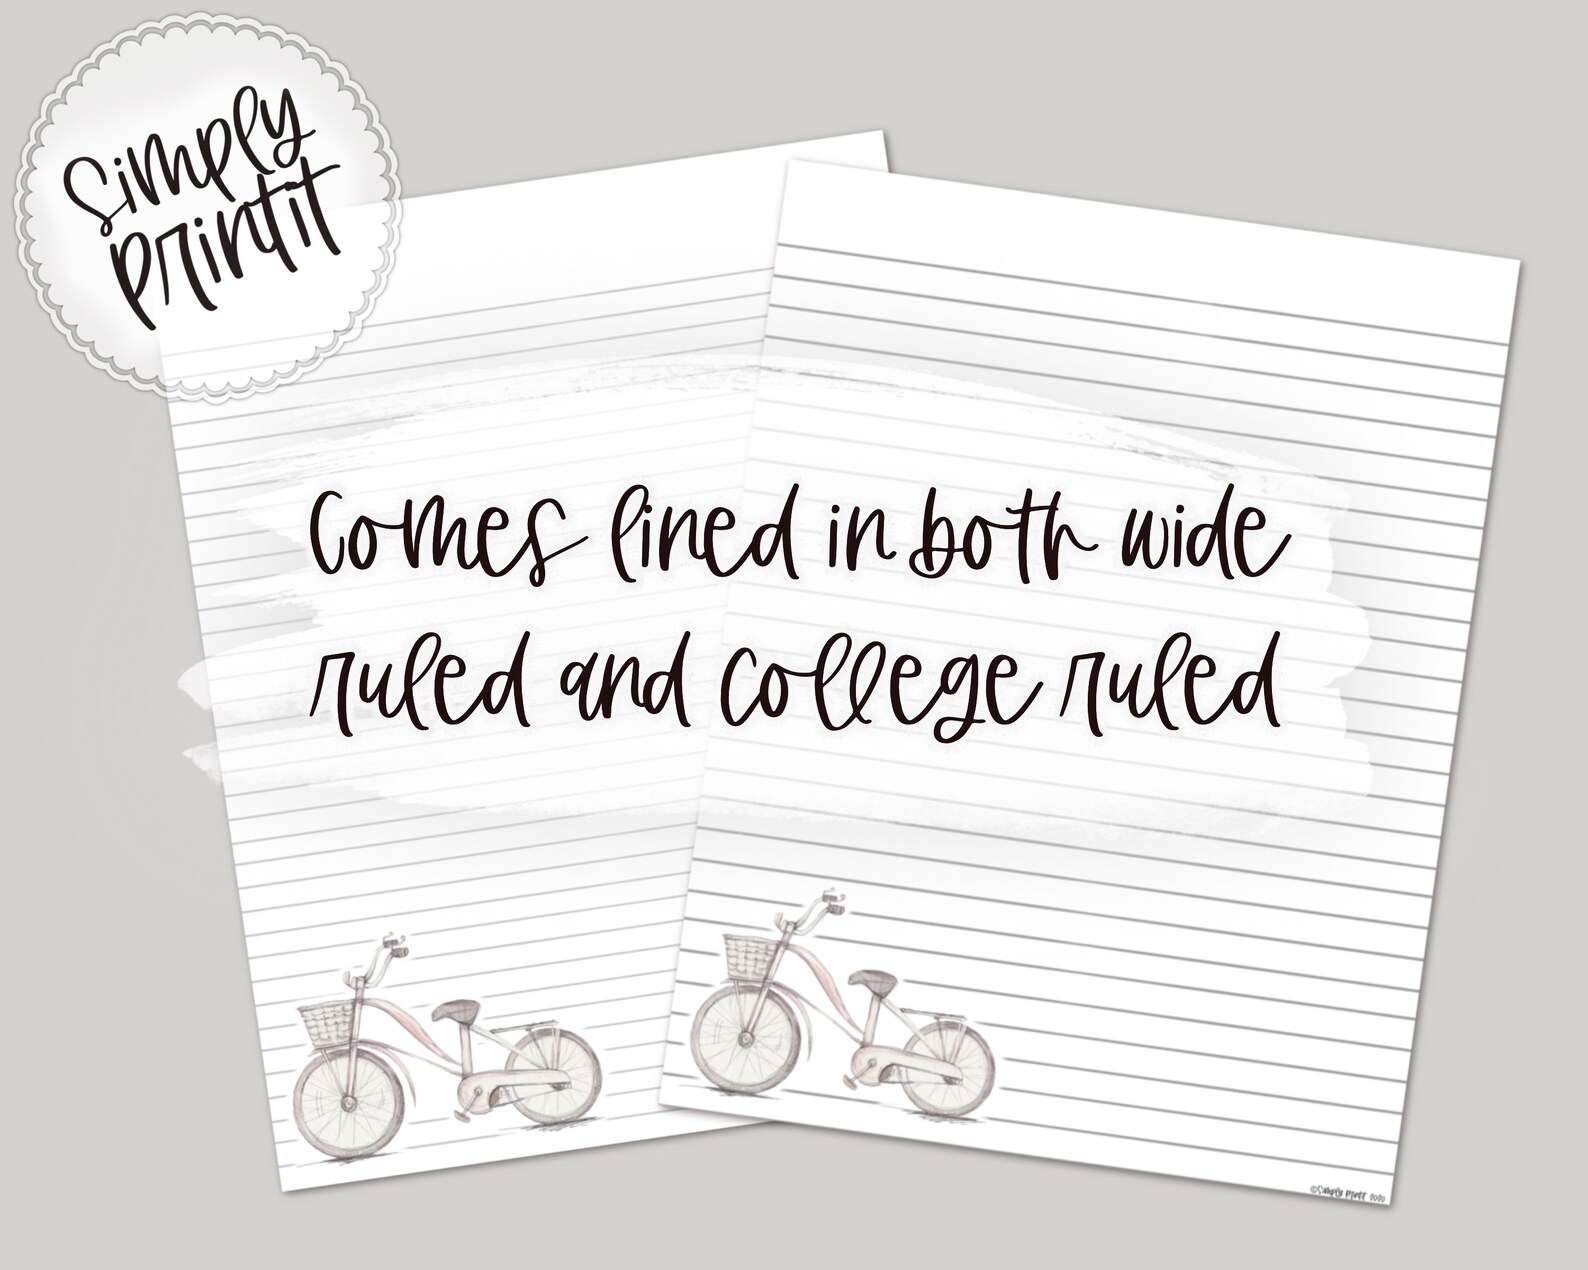 Simply
Printit
Comes lined in both wide
ruled and college ruled
©Simply Printit 2020